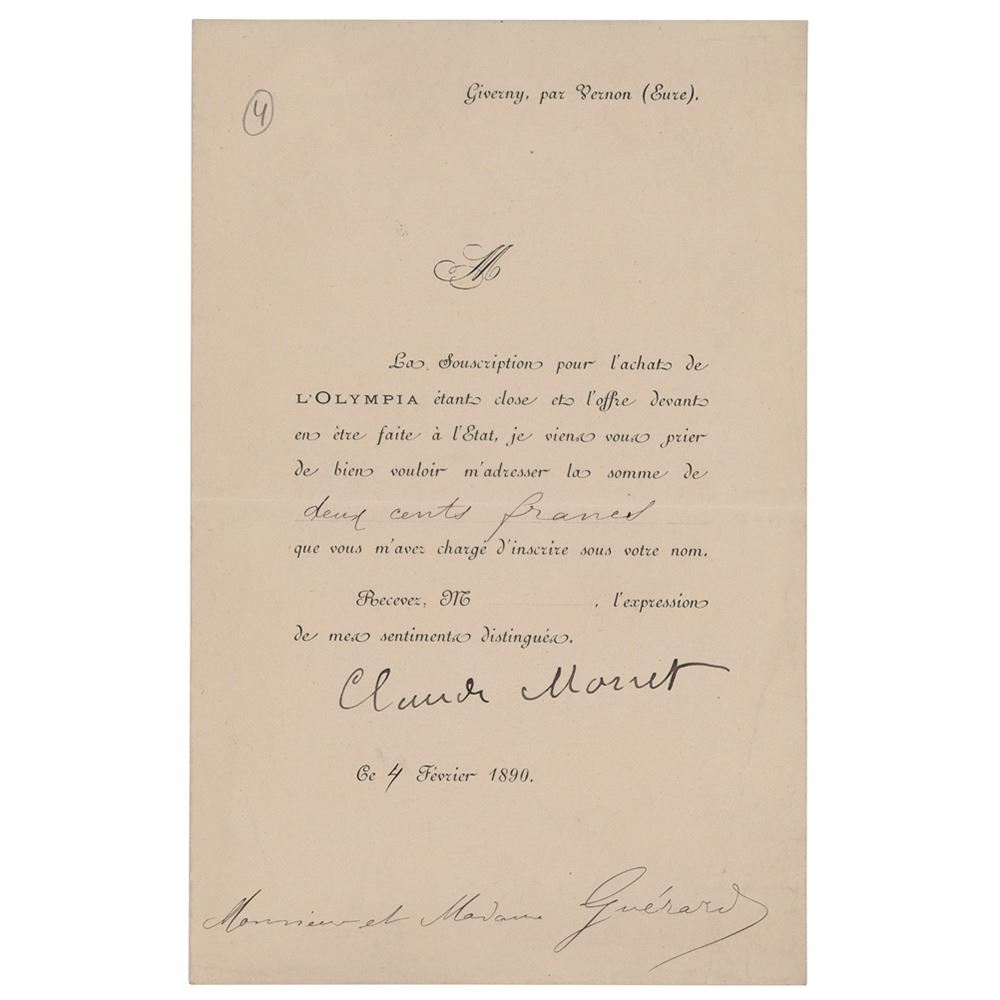 4
Giverny, par Vernon (Eure).
M
La Souscription pour l'achat de
L'OLYMPIA étant close et l'offre devant
en être faite à l'Etat, je viens vous prier
de bien vouloir m'adresser la somme de
deux cents francs
que vous m'avez chargé d'inscrire sous votre nom.
Recevez, M , l'expression
de mes sentiments distingués.
Claude Monet
Ce 4 Février 1890.
Monsieur et Madame Guérard